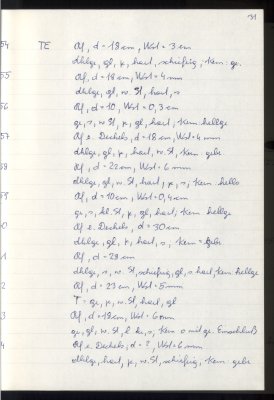 131
54 TE Rf, d = 18 cm, Wst = 3 cm
dhlge, gl, p, hart, schiefrig, Kern: ge.
55 Rf, d = 18 cm, Wst = 4 mm
dhlge, gl, w. St, hart, s
56 Rf, d = 10, Wst = 0,3 cm
ge, s, w. St, p, gl, hart, Kern: hellge
57 Rf e. Deckels, d = 18 cm, Wst = 4 mm
dhlge, gl, p, hart, w. St, Kern gebr
58 Rf, d = 22 cm, Wst = 6 mm
dhlge, gl, w. St, hart, p, s, Kern hellb
59 Rf, d = 10 cm, Wst = 0,4 cm
ge, s, kl. St, p, gl, hart, Kern hellge
0 Rf e. Deckels, d = 30 cm
dhlge, gl, p, hart, s, Kern = gebr
1 Rf, d = 29 cm
dhlge, s, w. St, schiefrig, gl, s hart, Kern hellge
2 Rf, d = 23 cm, Wst = 5 mm
T = ge, p, w. St, hart, gl
3 Rf, d = 18 cm, Wst = 6 mm
ge, gl, w. St, s, Kern mit ge. Einschluß
4 Rf e. Deckels, d = ?, Wst = 6 mm
dhlge, hart, p, w. St, schiefrig, Kern gebr